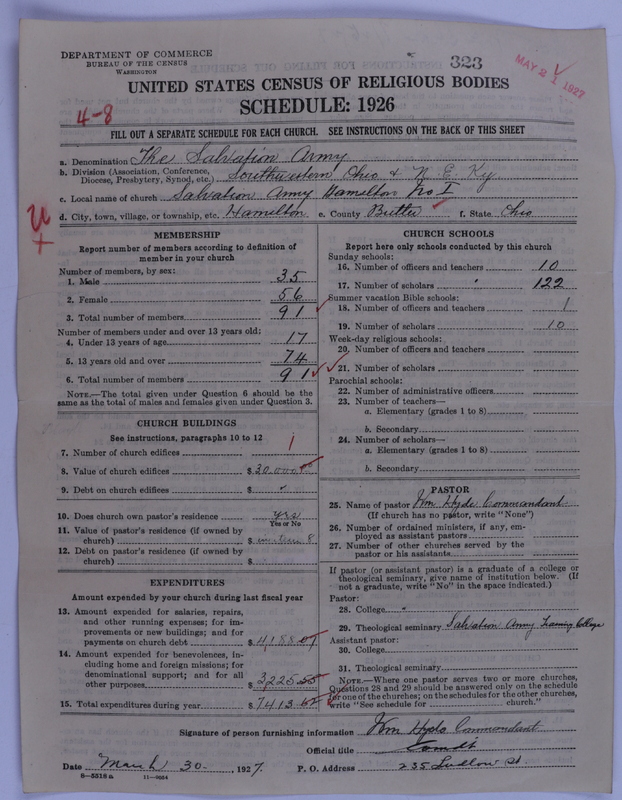 DEPARTMENT OF COMMERCE
BUREAU OF THE CENSUS
WASHINGTON
323
MAY 21 1927
UNITED STATES CENSUS OF RELIGIOUS BODIES
SCHEDULE: 1926
4-8
FILL OUT A SEPARATE SCHEDULE FOR EACH CHURCH. SEE INSTRUCTIONS ON THE BACK OF THIS SHEET
a. Denomination The Salvation Army
b. Division (Association, Conference, Diocese, Presbytery, Synod, etc.) Southwestern Ohio & N E Ky
c. Local name of church Salvation Army Hamilton No I
d. City, town, village, or township, etc. Hamilton e. County Butler f. State Ohio
MEMBERSHIP
Report number of members according to definition of
member in your church
Number of members, by sex:
1. Male 35
2. Female 56
3. Total number of members 91
Number of members under and over 13 years old:
4. Under 13 years of age 17
5. 13 years old and over 74
6. Total number of members 91
NOTE.—The total given under Question 6 should be
same as the total of males and females given under Question 3.
CHURCH BUILDINGS
See instructions, paragraphs 10 to 12
7. Number of church edifices 1
8. Value of church edifices $ 30,000
9. Debt on church edifices $
10. Does church own pastor's residence yes
Yes or No
11. Value of pastor's residence (if owned by
church) $
12. Debt on pastor's residence (if owned by
church) $
EXPENDITURES
Amount expended by your church during last fiscal year
13. Amount expended for salaries, repairs,
and other running expenses; for im-
provements or new buildings; and for
payments on church debt $ 4188.07
14. Amount expended for benevolences, in-
cluding home and foreign missions; for
denominational support; and for all
other purposes $ 3225.55
15. Total expenditures during year $ 7413.62
CHURCH SCHOOLS
Report here only schools conducted by this church
Sunday schools:
16. Number of officers and teachers 10
17. Number of scholars 122
Summer vacation Bible schools:
18. Number of officers and teachers 1
19. Number of scholars 10
Week-day religious schools:
20. Number of officers and teachers
21. Number of scholars
Parochial schools:
22. Number of administrative officers
23. Number of teachers—
a. Elementary (grades 1 to 8)
b. Secondary
24. Number of scholars—
a. Elementary (grades 1 to 8)
b. Secondary
PASTOR
25. Name of pastor Wm Hyde Commandant
(If church has no pastor, write "None")
26. Number of ordained ministers, if any, em-
ployed as assistant pastors
27. Number of other churches served by the
pastor or his assistants
If pastor (or assistant pastor) is a graduate of a college or
theological seminary, give name of institution below. (If
not a graduate, write "No" in the space indicated.)
Pastor:
28. College
29. Theological seminary Salvation Army Training College
Assistant pastor:
30. College
31. Theological seminary
NOTE.—Where one pastor serves two or more churches,
Questions 28 and 29 should be answered only on the schedule
for one of the churches; on the schedules for the other churches,
write "See schedule for church."
Signature of person furnishing information Wm Hyde Commandant
Official title Comdt
Date March 30, 1927. P. O. Address 235 Ludlow St
8-5518a 11-9064